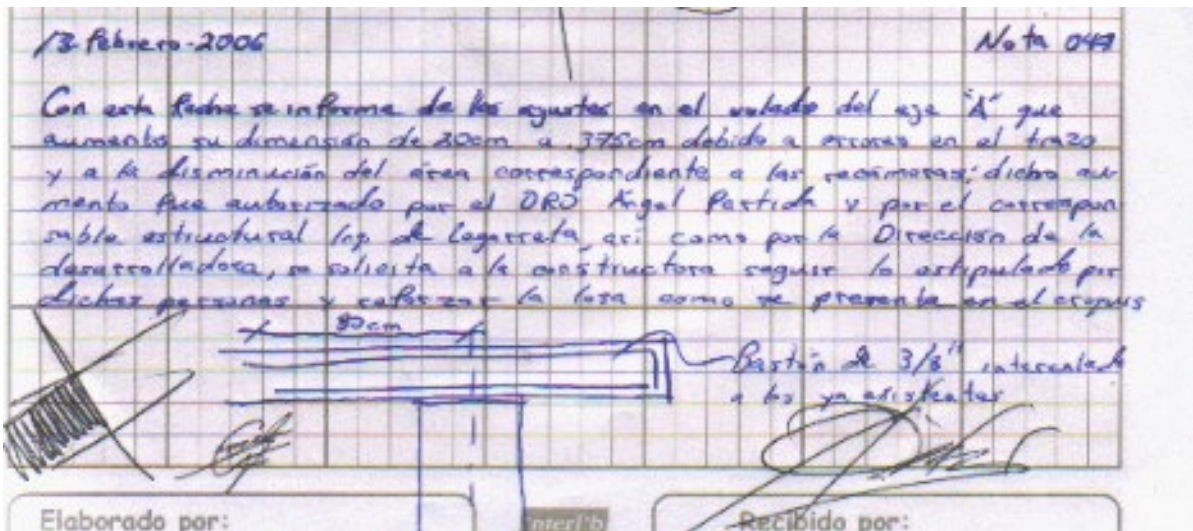 13-febrero-2006
Nota 047
Con esta fecha se informa de los ajustes en el volado del eje "A" que
aumento su dimensión de 20cm a .375cm debido a errores en el trazo
y a la disminución del área correspondiente a las recámaras; dicho au-
mento fue autorizado por el DRO Angel Partida y por el correspon
sable estructural Ing. de Logarreta, así como por la Dirección de la
desarrolladora, se solicita a la constructora seguir lo estipulado por
dichas personas y reforzar la losa como se presenta en el croquis
80cm
Bastón de 3/8" intercalado
a los ya existentes
Elaborado por:
Recibido por: